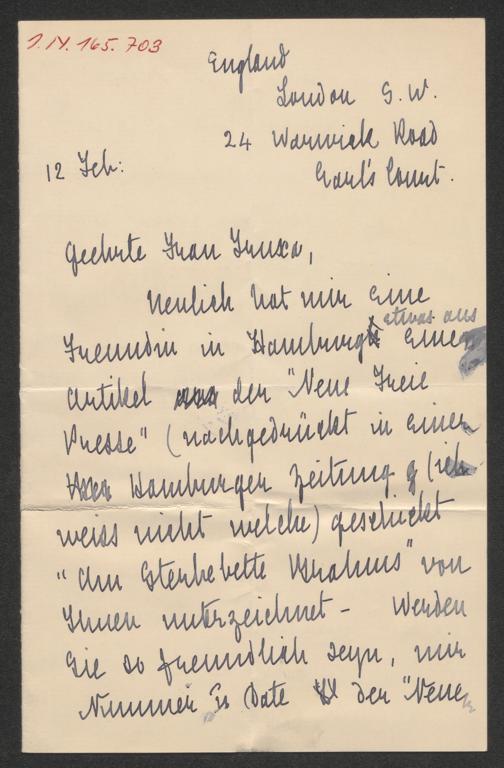 I.N. 165.703
England
London S. W.
24 Warwick Road
Earl's Court.
12 Feb:
Geehrte Frau Truxa,
Neulich hat mir eine
Freundin in Hamburg etwas aus
einem
Artikel der "Neue Freie
Presse" (nachgedrückt in einer
Hamburger Zeitung (ich
weiss nicht welche) geschickt
"Am Sterbebette Brahms" von
Ihnen unterzeichnet - Werden
Sie so freundlich seyn, mir
Nummer & Date der "Neue